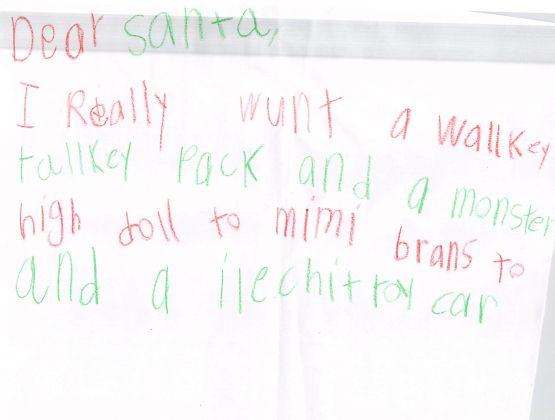 Dear santa,
I Really wunt a wallkey
tallkey pack and a monster
high doll to mimi brans to
and a ilechit roy car